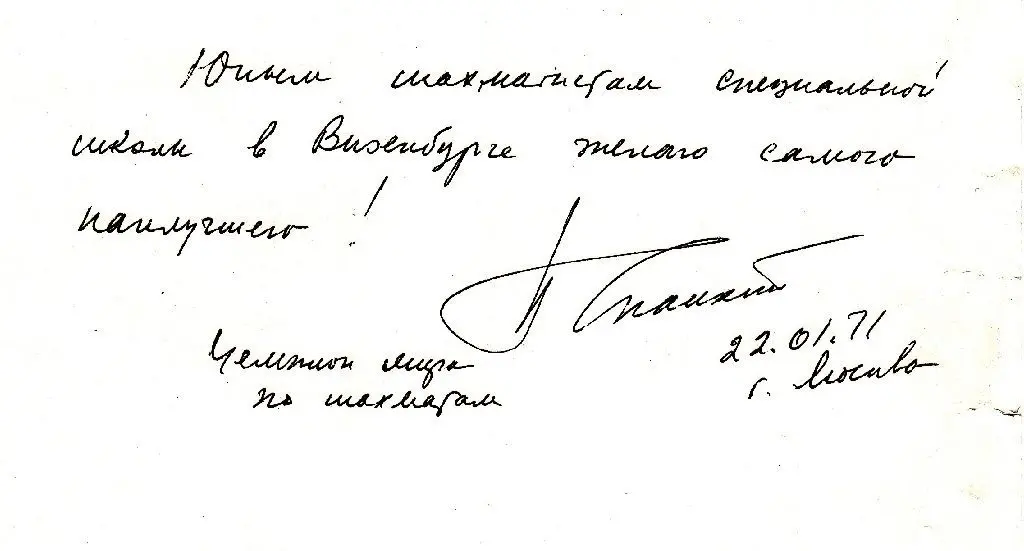 Юным шахматистам специальной
школы в Визенбурге желаю самого
наилучшего!
Чемпион мира
по шахматам
22.01.71
г. Москва